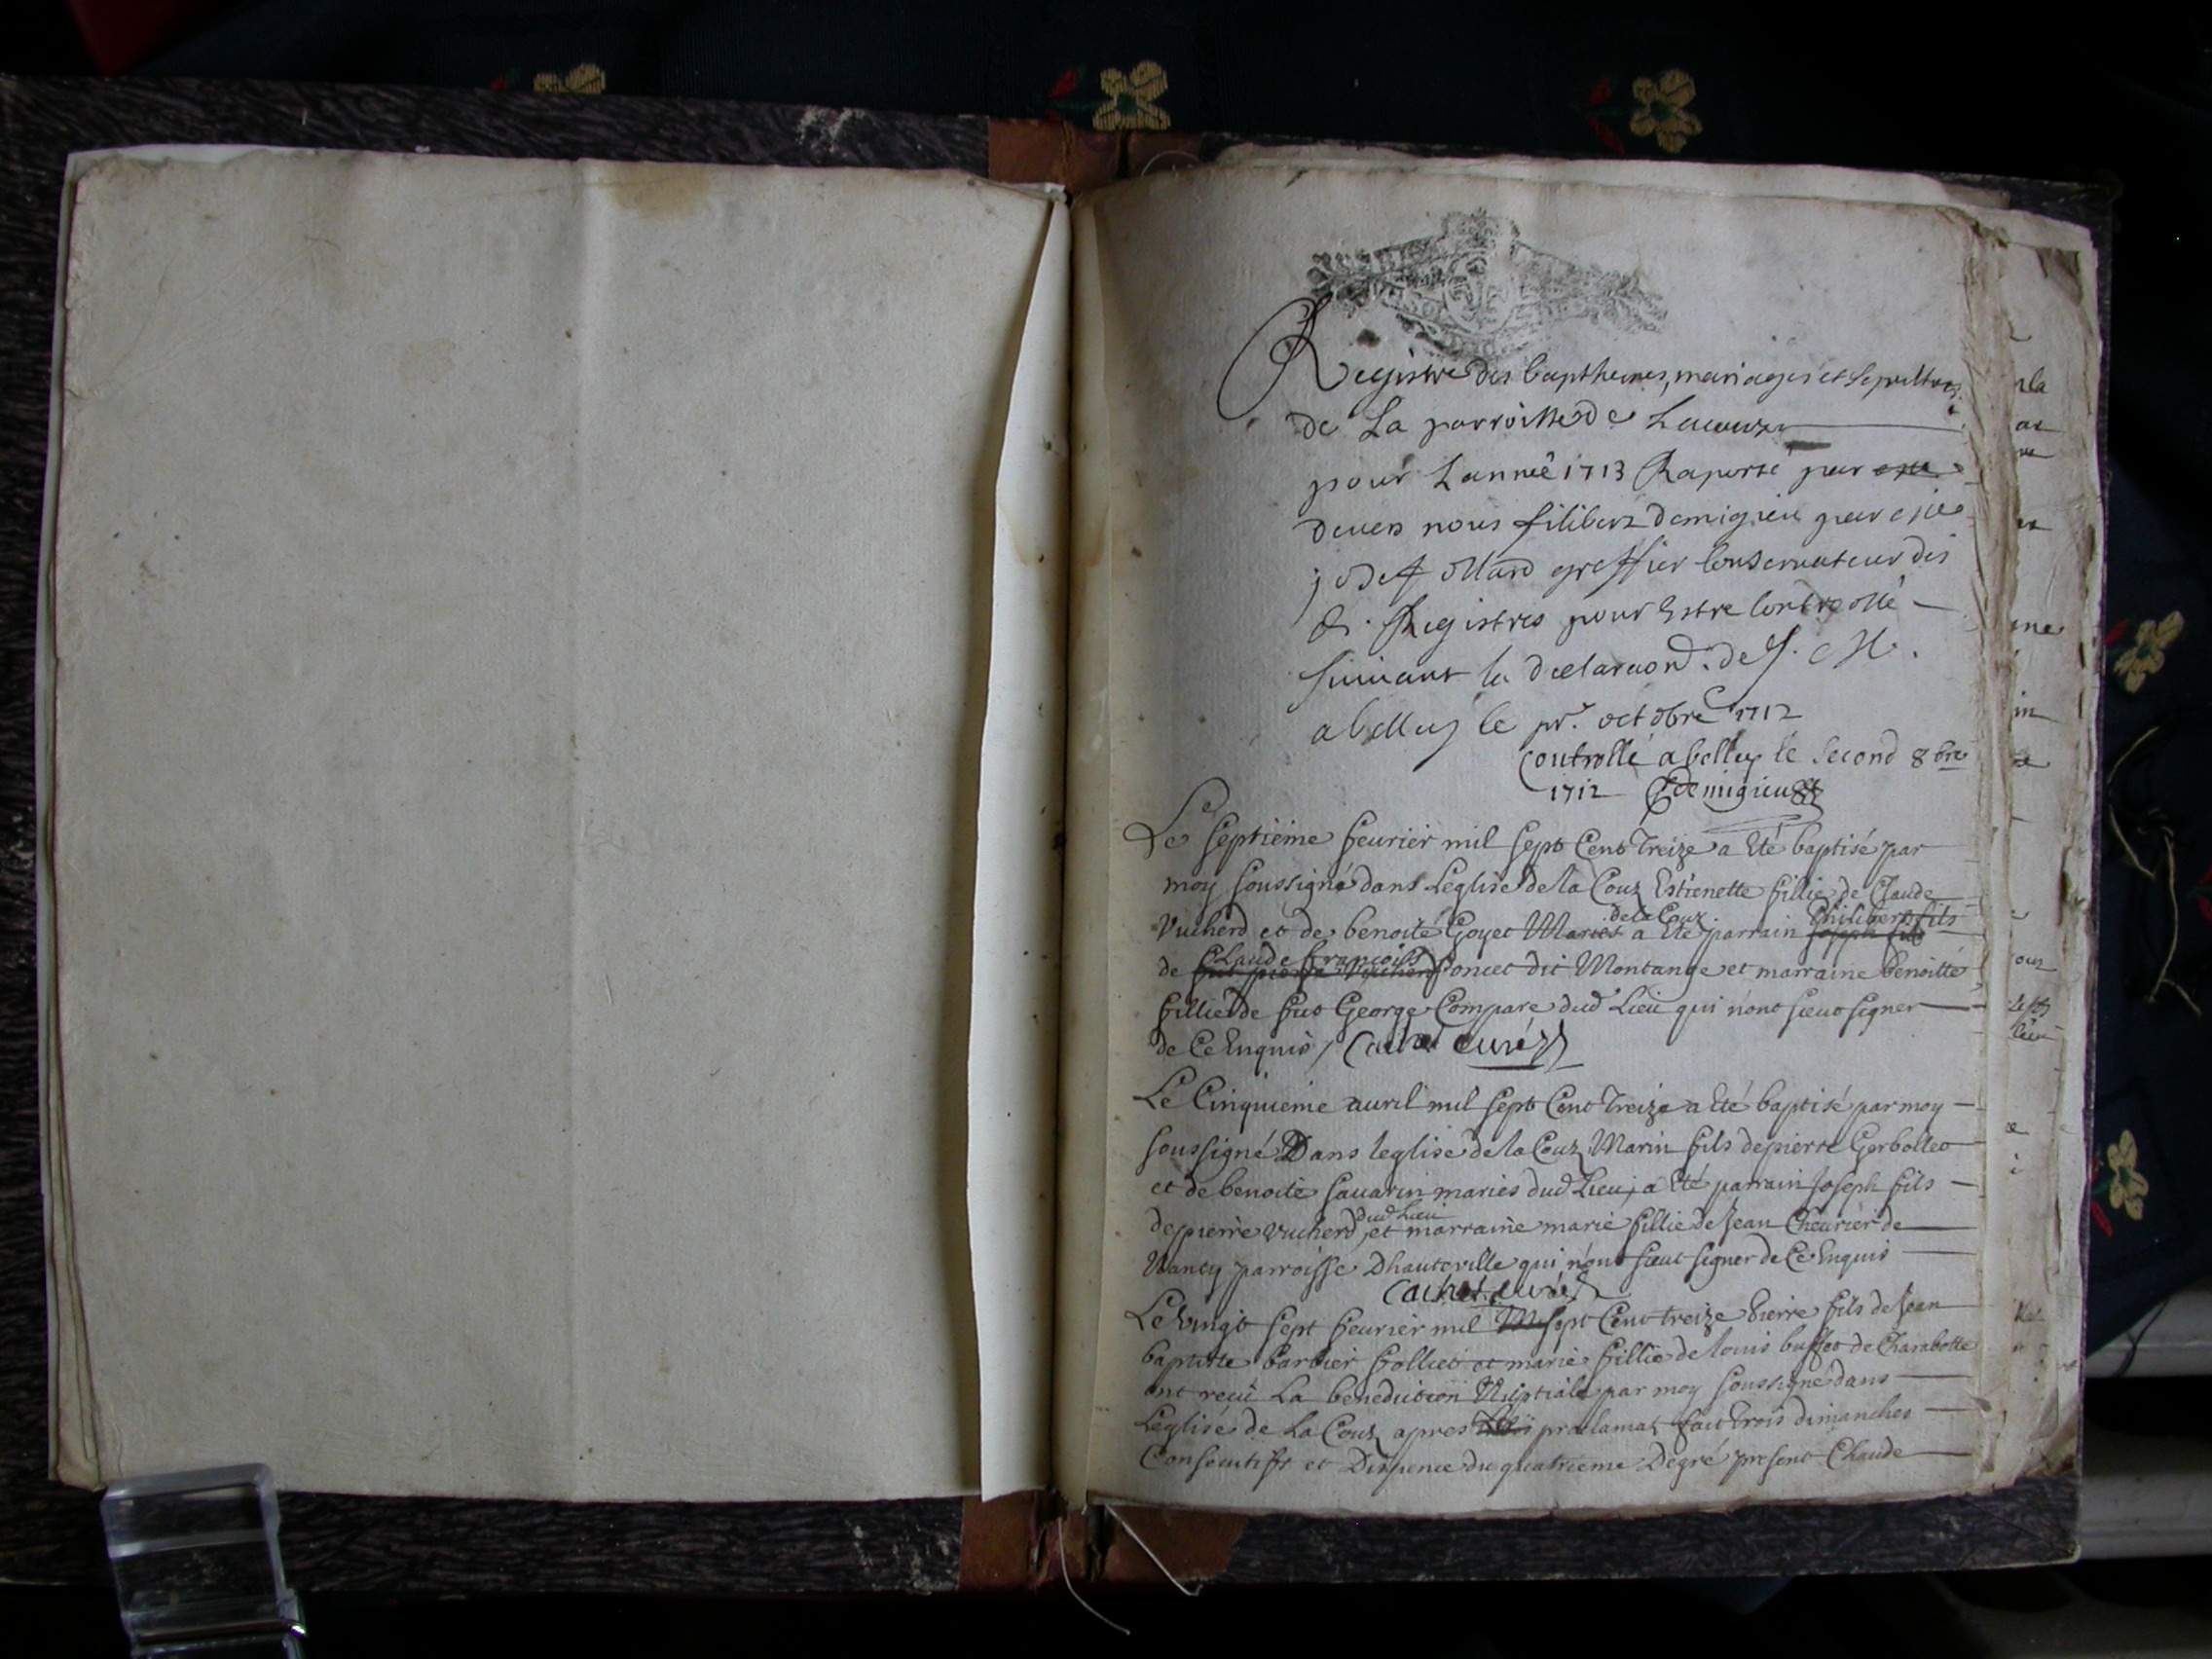 Registre des bapthemes, mariages et sepultures
de La parroisse de Lacouz
pour Lanneê 1713 Raporté par
devers nous filibert demigieu greffier
joseff ollard greffier Conservateur des
d. Registres pour Estre Controllé
suivant la declaraōn de S. M.
a belley le pr. octobre 1712
Controllé a belley le second 8bre
1712 Demigieu
Le septiéme feurier mil sept Cent Treize a Eté baptisé par
moy soussigné dans Leglise de la Couz Estienette fillie de Claude
Vucherd et de benoite Goyet Mariés de la Couz a Eté parrain Joseph fils Philibert fils
de feu pierre Vucherd Claude francois Poncet dit Montange et marraine benoitte
fillie de fut George Compare dud Lieu qui n'ont sceut signer
de Ce Enquis / Cachet curé
Le Cinquiéme auril mil sept Cent Treize a Eté baptisé par moy
soussigné Dans leglise de la Couz Marin fils de pierre Gerbollet
et de benoite sauarin mariés dud Lieu, a Eté parrain Joseph fils
de pierre Vucherd dud Lieu, et marraine marie fillie de Jean Cheurier de
Nancy parroisse Dhauteville qui n'ont sceut signer de Ce Enquis
Cachet curé
Le Vingt sept feurier mil sept Cent treize Pierre fils de Jean
baptiste barbier follliet et marie fillie de louis buffet de Charabotte
ont receü La benediction Nuptiale par moy soussigné dans
Leglise de La Couz apres proclamaz fait Trois dimanches
Consecutifs et Dispence du quatrieme Degré present Claude